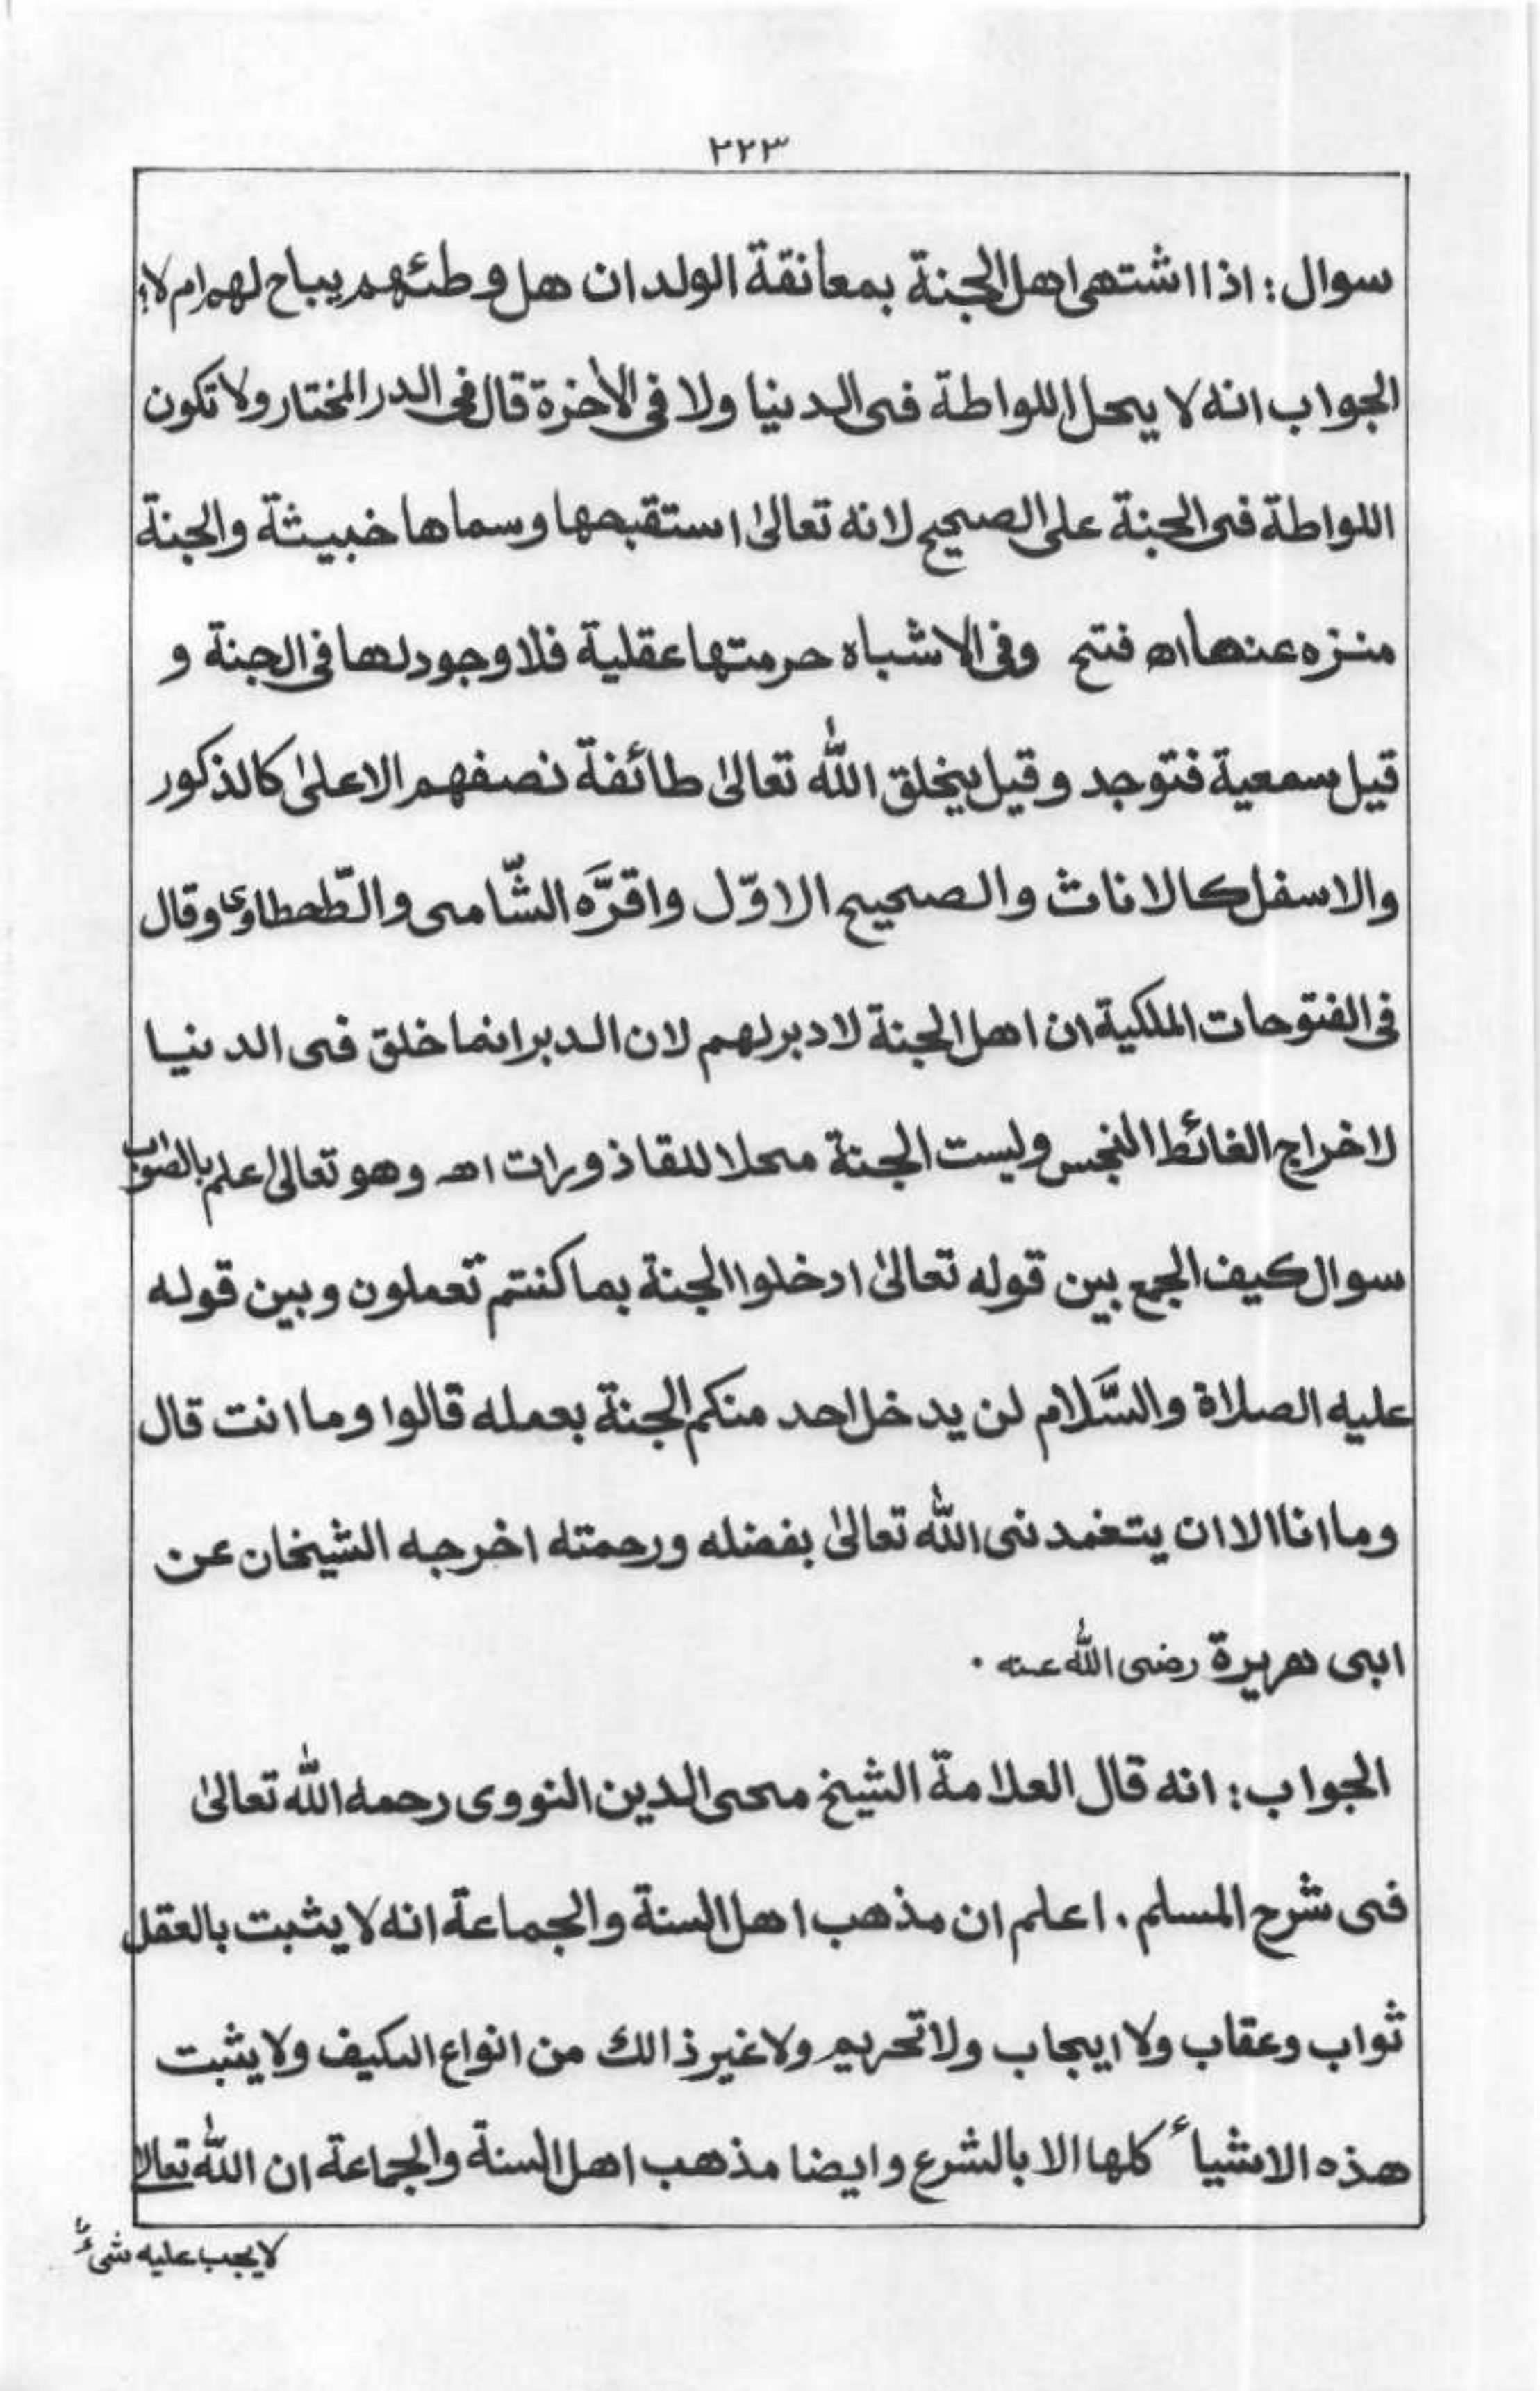 ٢٢٣
سوال: اذا اشتهى اهل الجنة بمعانقة الولدان هل وطئهم يباح لهم ام لا؟
الجواب انه لا يحل اللواطة فى الدنيا ولا فى الأخرة قال فى الدر المختار ولا تكون
اللواطة فى الجنة على الصحيح لانه تعالىٰ استقبحها وسماها خبيثة والجنة
منزه عنها اھ فتح وفى الاشباه حرمتها عقلية فلا وجود لها فى الجنة و
قيل سمعية فتوجد وقيل يخلق الله تعالىٰ طائفة نصفهم الاعلىٰ كالذكور
والاسفل كالاناث والصحيح الاوّل واقرَّه الشّامى والطّحطاوى وقال
فى الفتوحات الملكية ان اهل الجنة لا دبر لهم لان الدبر انما خلق فى الدنيا
لاخراج الغائط النجس وليست الجنة محلا للقاذورات اھ وهو تعالىٰ اعلم بالصواب
سوال كيف الجمع بين قوله تعالىٰ ادخلوا الجنة بما كنتم تعملون وبين قوله
عليه الصلاة والسَّلام لن يدخل احد منكم الجنة بعمله قالوا وما انت قال
وما انا الا ان يتغمدنى الله تعالىٰ بفضله ورحمته اخرجه الشيخان عن
ابى هريرة رضى الله عنه .
الجواب: انه قال العلامة الشيخ محى الدين النووى رحمه الله تعالىٰ
فى شرح المسلم . اعلم ان مذهب اهل السنة والجماعة انه لا يثبت بالعقل
ثواب وعقاب ولا ايجاب ولا تحريم ولا غير ذالك من انواع الكيف ولا يثبت
هذه الاشياء كلها الا بالشرع وايضا مذهب اهل السنة والجماعة ان الله تعالىٰ
لا يجب عليه شىءٌ